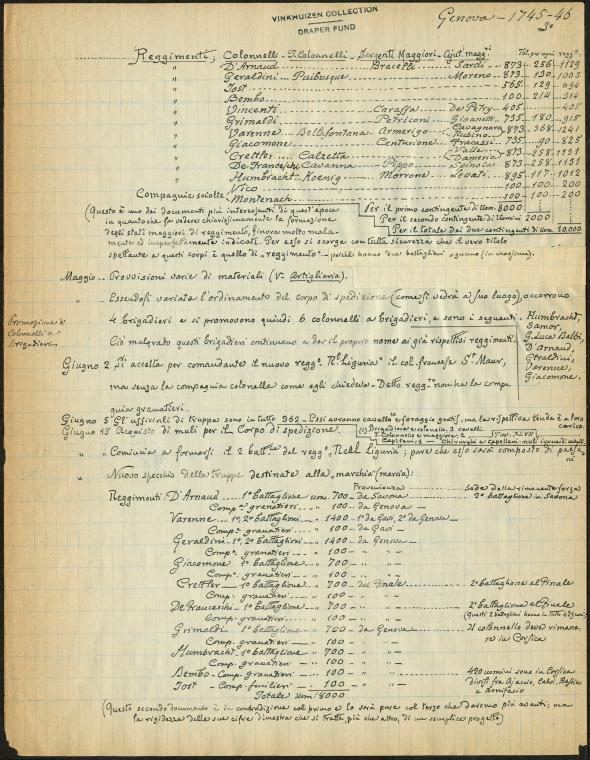 VINKHUIZEN COLLECTION
DRAPER FUND
Genova - 1745-46
3º
Reggimenti, Colonnelli - T. Colonnelli - Sergenti Maggiori - Ajut. maggri Tot. per ogni reggº
" D'Arnaud Bracelli Sardi 873 - 256 - 1129
" Geraldini - Paibusque Moreno 873 130 1003
" Jost 565 129 694
" Bembo 100 214 314
" Vincenti Caraffa De Petry 405 405
" Grimaldi Petriconi Gioanetti 735 180 915
" Varenne Bellefontana Armerigo Cavagnara Rubino 873 368 1241
" Giacomone Centurione Fracassi 735 90 825
" Crettler Calzetta Valle Dameria 873 258 1131
" De Franceschi Cavanna Pippo Spinola 873 258 1131
" Humbracht Koenig Morrone Levati 895 117 1012
" Vico 100 100 200
Compagnie sciolte Montenach 100 100 200
(Questo è uno dei documenti più interessanti di quest'epoca
in quanto che fa vedere chiarissimamente la formazione
degli stati maggiori di reggimento, finora molto malamente
o imperfettamente indicati. Per esso si scorge con tutta sicurezza che il vero titolo
spettante a questi corpi è quello di "reggimento" - poichè hanno due battaglioni ognuno (in massima).
Per il primo contingente di Uom. 8000
Per il secondo contingente di Uomini 2000
Per il Totale dei due contingenti di Uom. 10,000
Maggio - Provvisioni varie di materiali (V. Artiglieria).
" Essendosi variato l'ordinamento del corpo di spedizione (come si vedrà a suo luogo), occorrono
Promozione di Colonnelli a brigadieri
4 brigadieri e si promovono quindi 6 colonnelli a brigadieri, e sono i seguenti
Humbracht,
Samor,
G. Luca Balbi,
D'Arnaud,
Geraldini,
Varenne,
Giacomone.
Ciò malgrado questi brigadieri continuano a dar il proprio nome ai già rispettivi reggimenti.
Giugno 2 Si accetta per comandante il nuovo reggº "Rl Liguria" il col. francese St Maur,
ma senza la compagnia colonella come egli chiedeva - Detto reggto non ha la compagnia
granatieri.
Giugno 5 Gl'ufficiali di truppa sono in tutto 362 - Essi avranno cavallo e foraggio gratis, ma la rispettiva tenda è a loro carico.
Giugno 15 Acquisto di muli per il Corpo di spedizione.
(1) Brigadieri e colonello, 3 cavalli
T. Colonnello e maggiore, 2
Capitani, 1
Chirurghi e capellani, muli
" Comincia a formarsi il 2º battne del reggº "Real Liguria"; pare che esso sarà composto di paesani
" Nuovo specchio delle truppe destinate alla "marchia" (marcia):
Provenienza Sede della rimanente forza
Reggimenti: D'Arnaud 1º battaglione uom. 700 da Savona 2º battaglione in Savona
Compª granatieri " 100 da Genova
Varenne 1º, 2º battaglioni " 1400 1º da Gavi, 2º da Genova
Compª granatieri " 100 da Gavi
Geraldini 1º, 2º battaglioni " 1400 da Genova
Compª granatieri " 100 " "
Giacomone 1º battaglione " 700 " "
Compª granatieri " 100 " "
Crettler 1º battaglione " 700 dal Finale 2º battaglione al Finale
Comp. granatieri " 100 " "
De Franceschi 1º battaglione " 700 " " 2º battaglione al Finale
Comp. granatieri " 100 " " (Questi 2 battaglioni hanno in tutto 429 uomini)
Grimaldi 1º battaglione " 700 da Genova Il colonnello deve rimanere
Comp. granatieri " 100 " " in Corsica
Humbracht 1º battaglione " 700 " "
Comp. granatieri " 100 " "
Bembo - Comp. granatieri " 100 " " 420 uomini sono in Corsica
Jost - Comp. fucilieri " 100 " " divisi fra Ajaccio, Calvi, Bastia e Bonifacio
Totale Uom. 8000
(Questo secondo documento è in contradizione col primo e lo sarà pure col terzo che daremo più avanti; ma
la rigidezza delle sue cifre dimostra che si tratta, più che altro, di un semplice progetto)